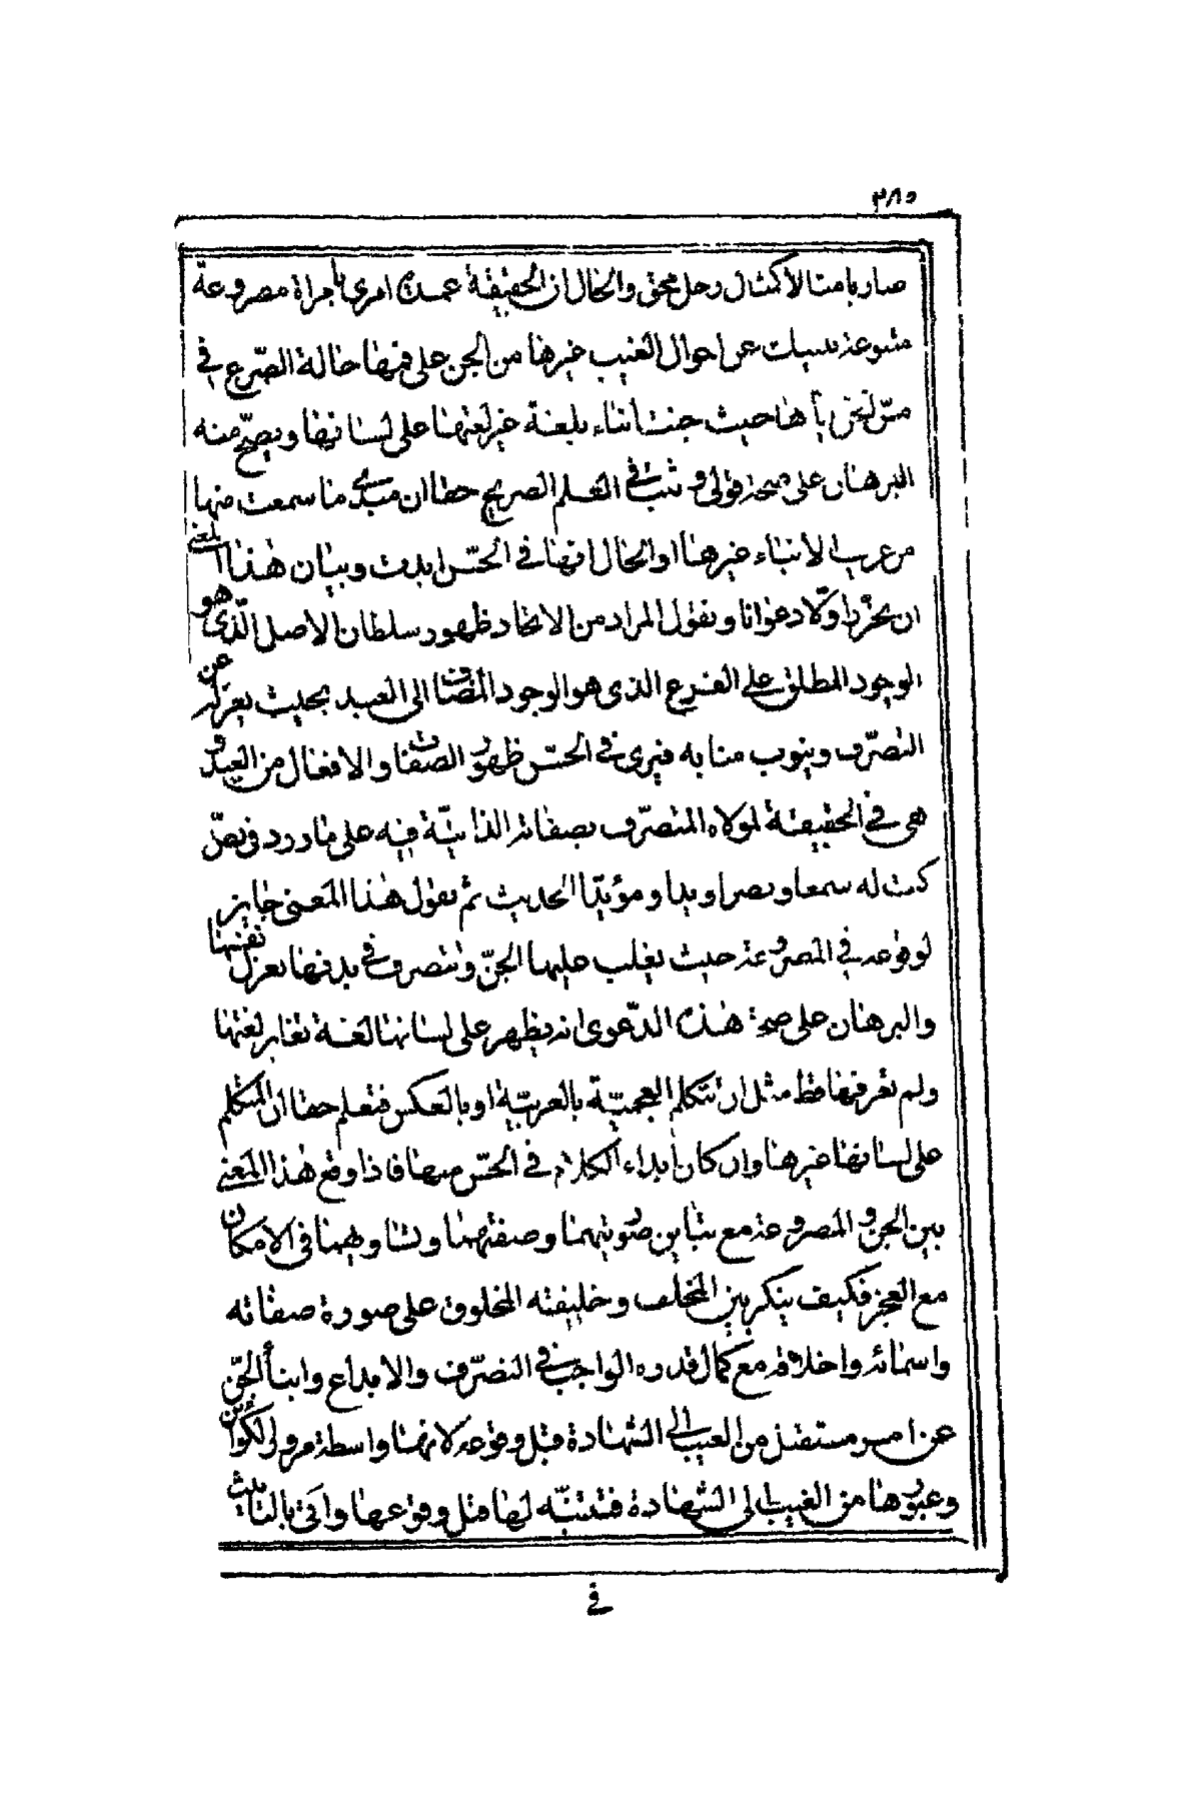 ٣٨٥
صار بامتنا لا كثال رجل محق والحال ان الحقيقة عمدة امرى بامراة مصروعة
متبوعة عن احوال الغيب غيرها من الجن على فمها حالة الصّرع في
مسّ بأها حيث جنت انباء بلغة غير لغتها على لسانها ويصحّ منه
البرهان على صحة قولى وثبت في العلم الصريح حقا ان مبدئ ما سمعت منها
من غريب الانباء غيرها والحال انها في الحسّ ابدت وبيان هذا المعنى
ان يحرّر اوّلا دعوانا ونقول المراد من الاتحاد ظهور سلطان الاصل الّذى هو
الوجود المطلق على الفرع الذى هو الوجود المضاف الى العبد بحيث يعزل عن
التصرّف وينوب منابه فيرى في الحسّ ظهور الصفات والافعال من العبد و
هى في الحقيقة لمولاه المتصرّف بصفاته الذاتيّة فيه على ما ورد فى نصّ
كنت له سمعا وبصرا ويدا ومؤيّدا الحديث ثم نقول هذا المعنى جايز
لوقوعه في المصروعة حيث يغلب عليها الجنّ وتتصرف في بدنها بعزل نفسها
والبرهان على صحة هذه الدّعوى انه يظهر على لسانها لغة تغاير لغتها
ولم تعرفها قط مثل ان تتكلم العجميّة بالعربيّة او بالعكس فتعلم حقا ان المتكلم
على لسانها غيرها وان كان ابداء الكلام في الحسّ منها فاذا وقع هذا المعنى
بين الجن والمصروعة مع تباين صورتيهما وصفتهما وتساويهما فى الامكان
مع العجز فكيف ينكر بين المخلف وخليفته المخلوق على صورة صفاته
واسمائه واخلاقه مع كمال قدرة الواجب في التصرّف والابداع وانبأ الجنّ
عن امر مستقبل من الغيب الى الشهادة قبل وقوعه لانهما واسطة مرور الكوائن
وعبورها من الغيب الى الشهادة فتتنبّه لها قبل وقوعها واتى بالتانيث
في